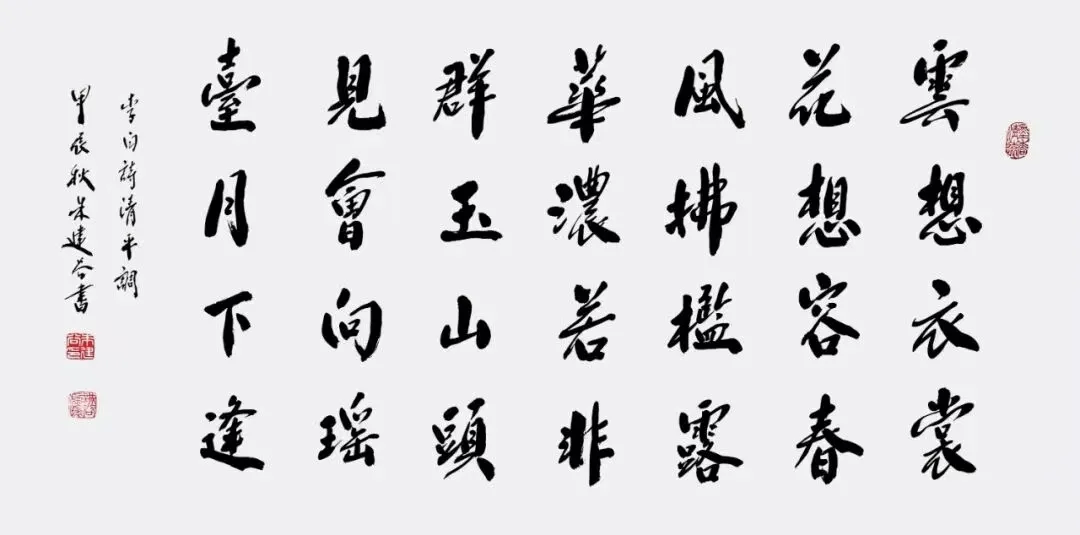 雲想衣裳
花想容春
風拂檻露
華濃若非
群玉山頭
見會向瑶
臺月下逢
李白詩清平調
甲辰秋朱建谷書